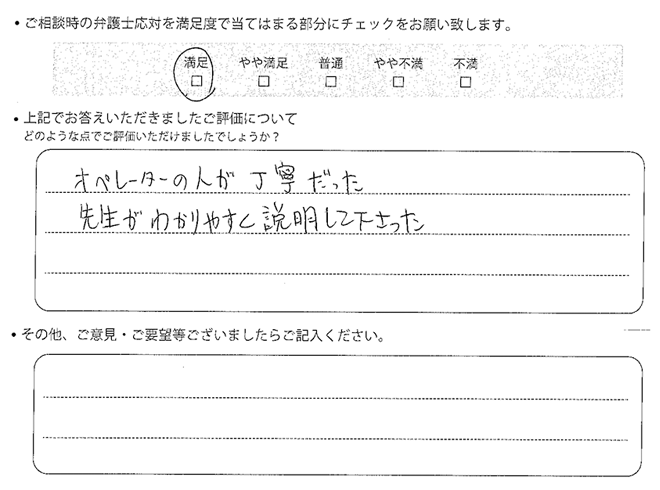 ・ご相談時の弁護士応対を満足度で当てはまる部分にチェックをお願い致します。
満足 やや満足 普通 やや不満 不満
□ □ □ □ □
・上記でお答えいただきましたご評価について
どのような点でご評価いただけましたでしょうか？
オペレーターの人が丁寧だった
先生がわかりやすく説明して下さった
・その他、ご意見・ご要望等ございましたらご記入ください。